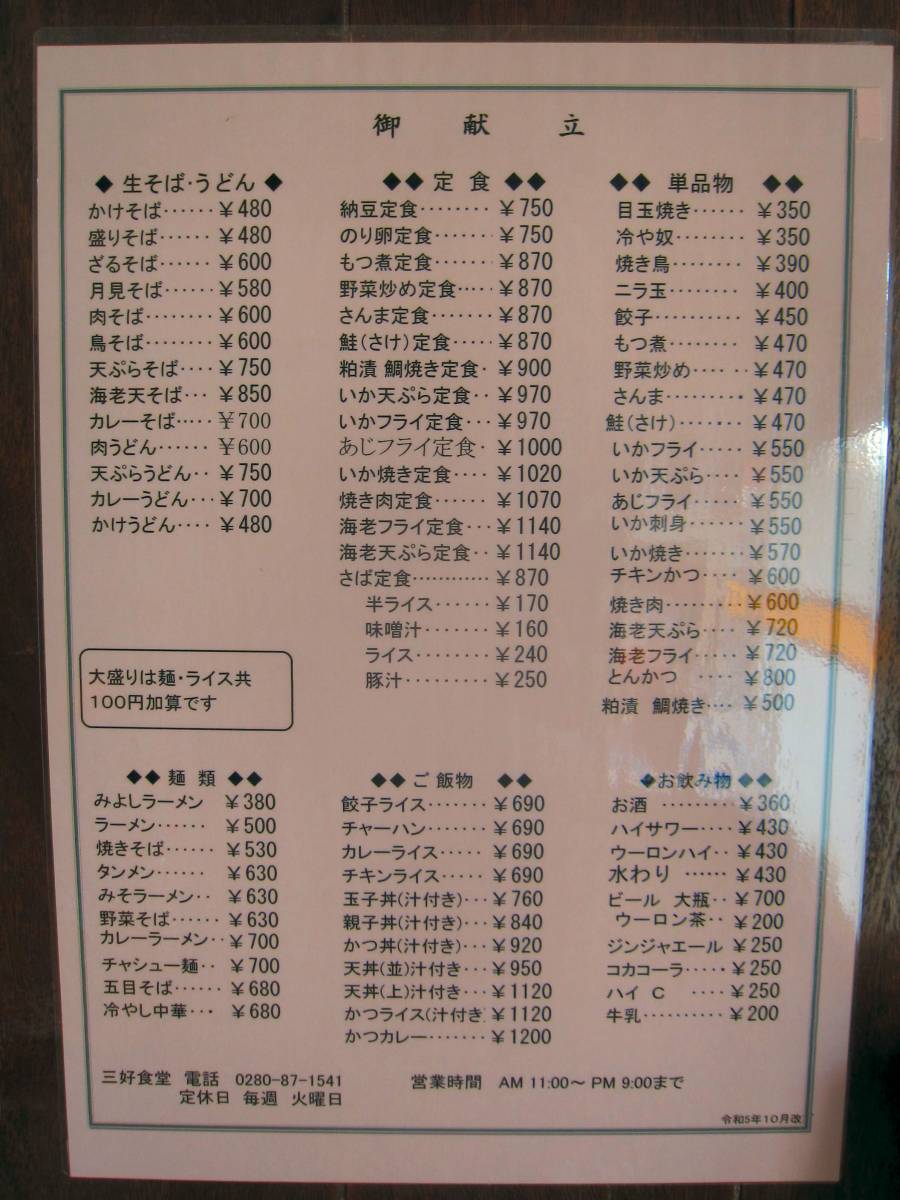 御 献 立
◆ 生そば・うどん ◆
かけそば…… ￥480
盛りそば…… ￥480
ざるそば…… ￥600
月見そば…… ￥580
肉そば……… ￥600
鳥そば……… ￥600
天ぷらそば‥‥ ￥750
海老天そば… ￥850
カレーそば…‥ ￥700
肉うどん…… ￥600
天ぷらうどん‥ ￥750
カレーうどん… ￥700
かけうどん‥‥ ￥480
大盛りは麺・ライス共
100円加算です
◆◆ 定 食 ◆◆
納豆定食……‥ ￥750
のり卵定食…… ￥750
もつ煮定食…… ￥870
野菜炒め定食‥‥ ￥870
さんま定食…… ￥870
鮭(さけ)定食… ￥870
粕漬 鯛焼き定食・ ￥900
いか天ぷら定食‥ ￥970
いかフライ定食… ￥970
あじフライ定食・ ￥1000
いか焼き定食… ￥1020
焼き肉定食…… ￥1070
海老フライ定食… ￥1140
海老天ぷら定食‥ ￥1140
さば定食………… ￥870
半ライス…… ￥170
味噌汁……‥ ￥160
ライス……… ￥240
豚汁………… ￥250
◆◆ 単品物 ◆◆
目玉焼き…… ￥350
冷や奴……‥ ￥350
焼き鳥……… ￥390
ニラ玉……… ￥400
餃子………… ￥450
もつ煮……… ￥470
野菜炒め‥‥ ‥ ￥470
さんま……… ￥470
鮭(さけ)…‥‥ ￥470
いかフライ‥‥ ￥550
いか天ぷら‥‥ ￥550
あじフライ‥‥ ￥550
いか刺身…… ￥550
いか焼き…… ￥570
チキンかつ‥‥ ￥600
焼き肉……… ￥600
海老天ぷら‥‥ ￥720
海老フライ‥‥ ￥720
とんかつ ‥‥ ￥800
粕漬 鯛焼き‥‥ ￥500
◆◆ 麺 類 ◆◆
みよしラーメン ￥380
ラーメン…… ￥500
焼きそば…… ￥530
タンメン…… ￥630
みそラーメン‥ ￥630
野菜そば…… ￥630
カレーラーメン‥ ￥700
チャシュー麺‥ ￥700
五目そば…… ￥680
冷やし中華… ￥680
◆◆ ご 飯物 ◆◆
餃子ライス…… ￥690
チャーハン…… ￥690
カレーライス…‥ ￥690
チキンライス…‥ ￥690
玉子丼(汁付き)… ￥760
親子丼(汁付き)… ￥840
かつ丼(汁付き)… ￥920
天丼(並)汁付き… ￥950
天丼(上)汁付き… ￥1120
かつライス(汁付き) ￥1120
かつカレー…… ￥1200
◆お飲み物 ◆◆
お酒 ……… ￥360
ハイサワー‥‥ ￥430
ウーロンハイ‥ ￥430
水わり …… ￥430
ビール 大瓶‥ ￥700
ウーロン茶‥ ￥200
ジンジャエール ￥250
コカコーラ…‥ ￥250
ハイ C ‥‥ ￥250
牛乳……… ￥200
三好食堂 電話 0280-87-1541 営業時間 AM 11:00～ PM 9:00まで
定休日 毎週 火曜日
令和5年10月改